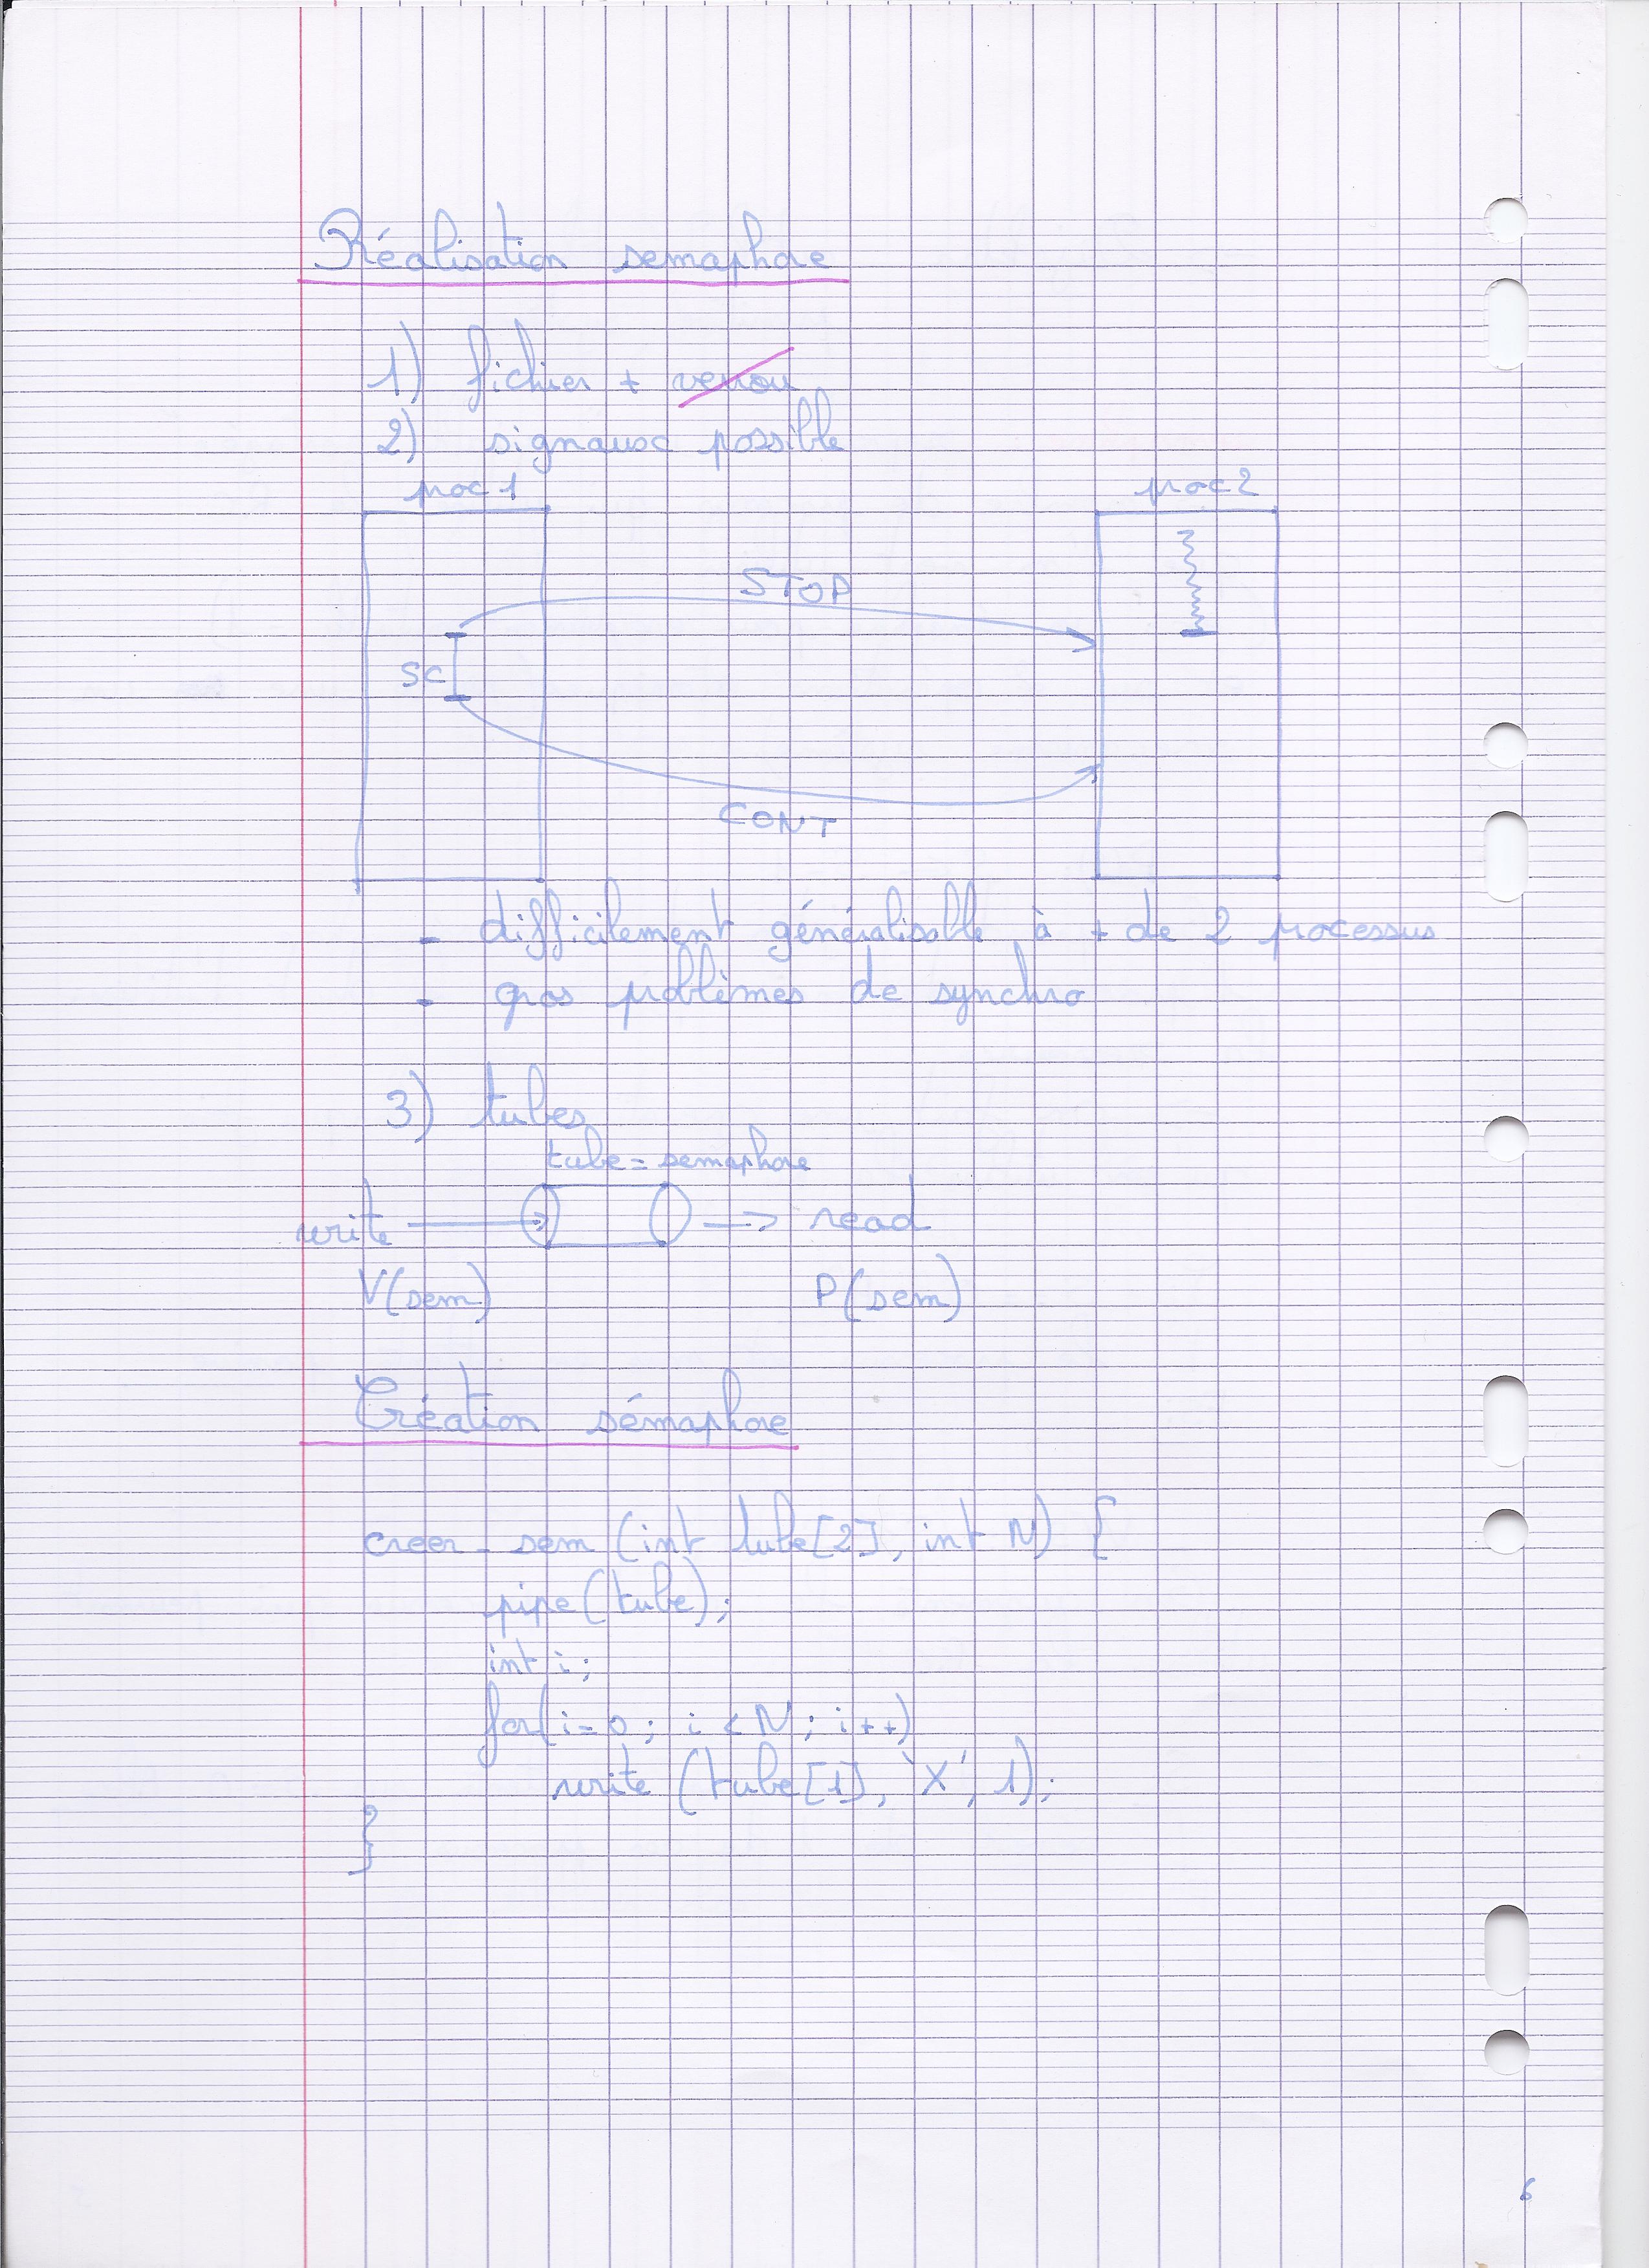 Réalisation semaphore
1) fichier + verrou
2) signaux possible
proc 1
proc 2
STOP
SC
CONT
- difficilement généralisable à + de 2 processus
- gros problèmes de synchro
3) tubes
tube = semaphore
write → → read
V(sem) P(sem)
Création sémaphore
creer_sem (int tube[2], int N) {
pipe(tube);
int i;
for(i=0; i<N; i++)
write (tube[1], 'X', 1);
}
6